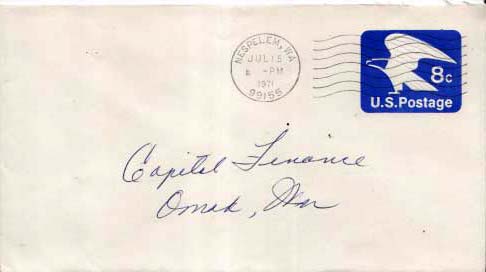 NESPELEM, WA
JUL 15
-PM
1971
99155
8c
U.S. Postage
Capital Finance
Omak, Wn